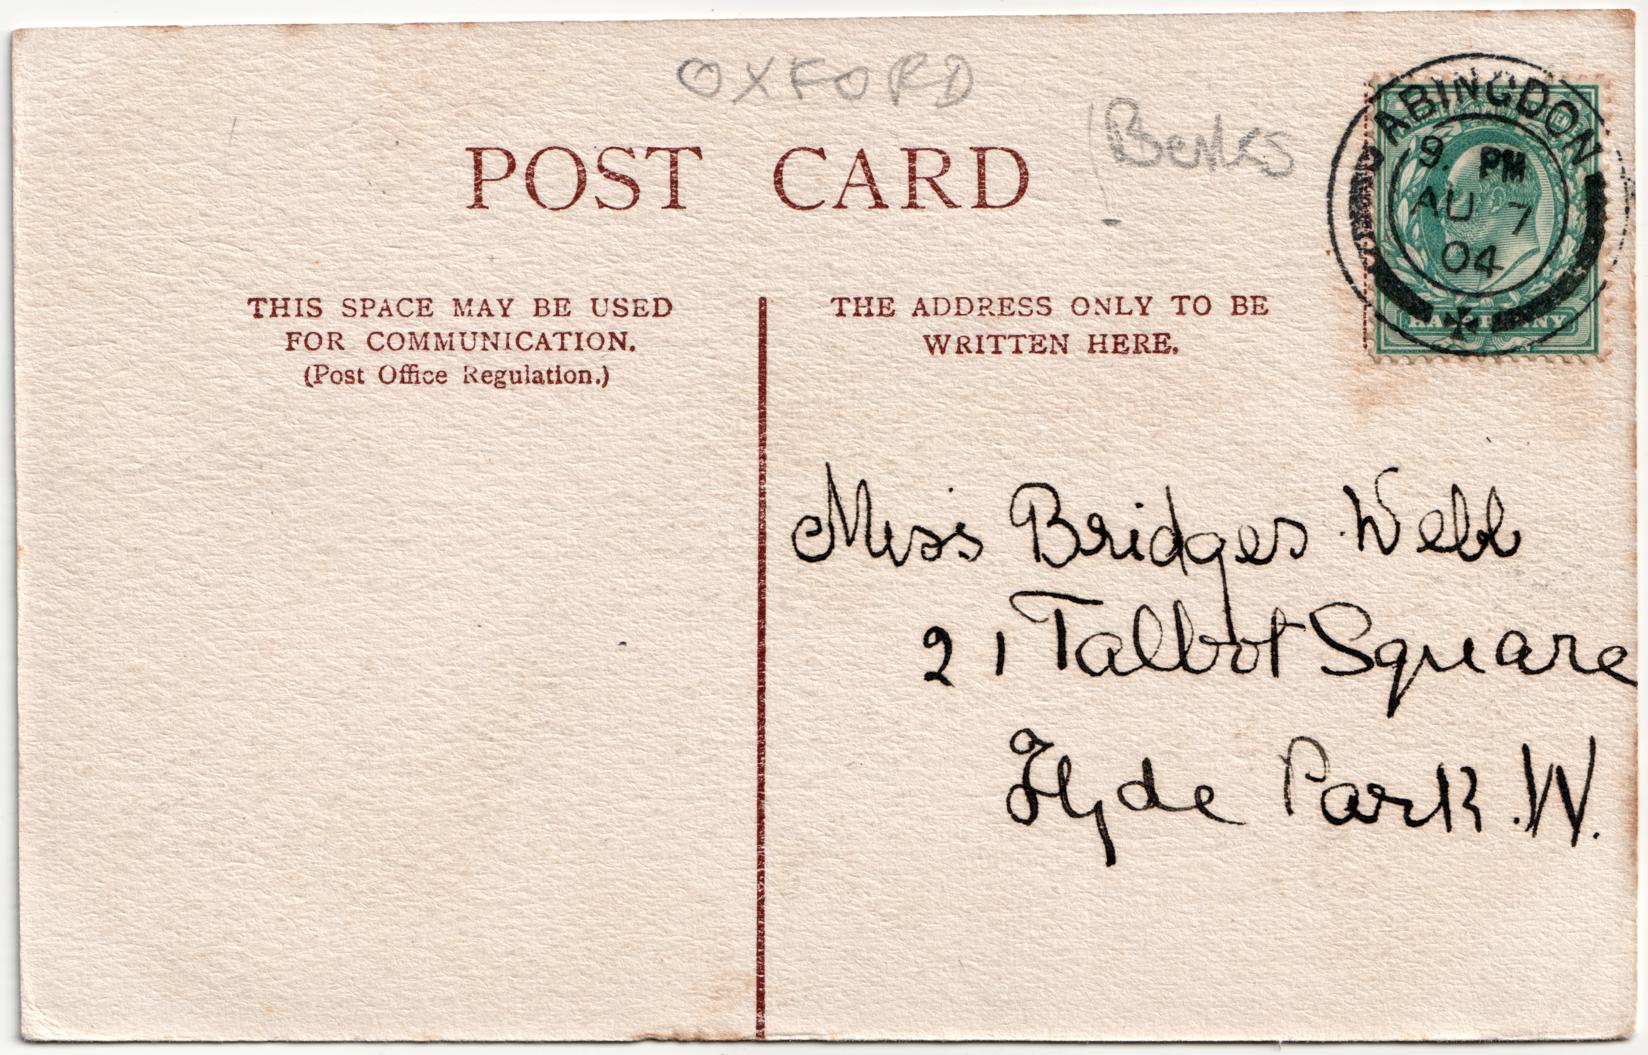 OXFORD
Berks
POST CARD
ABINGDON
9 PM
AU 7
04
HALFPENNY
THIS SPACE MAY BE USED
FOR COMMUNICATION.
(Post Office Regulation.)
THE ADDRESS ONLY TO BE
WRITTEN HERE.
Miss Bridges Webb
21 Talbot Square
Hyde Park. W.